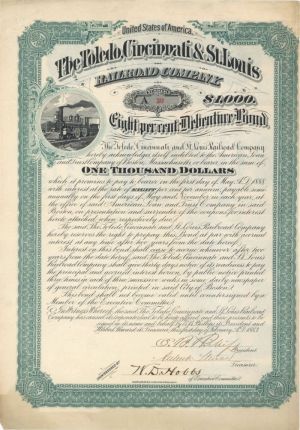 United States of America.
The Toledo, Cincinnati & St. Louis
RAILROAD COMPANY.
A
$1,000.
Eight per cent. Debenture Bond.
The Toledo, Cincinnati and St. Louis Railroad Company
hereby acknowledges itself indebted to the American Loan
and Trust Company of Boston, Massachusetts, or bearer, in the sum of
ONE THOUSAND DOLLARS
which it promises to pay to bearer on the first day of May A.D. 1888
with interest at the rate of EIGHT per cent per annum, payable semi-
annually on the first days of May and November in each year, at
the office of said American Loan and Trust Company in said
Boston, on presentation and surrender of the coupons for interest
hereto attached, when respectively due.
The said The Toledo, Cincinnati and St. Louis Railroad Company
hereby reserves the right to pay this Bond at par with accrued
interest at any time after two years from the date hereof.
Interest on this bond shall cease to accrue whenever after two
years from the date hereof, said The Toledo, Cincinnati and St. Louis
Railroad Company shall have given thirty days notice of its readiness to pay
the principal and accrued interest hereon, by public notice printed
three times in each of three successive weeks in some daily newspaper
of general circulation, printed in said City of Boston.
This bond shall not become valid until countersigned by a
Member of the Executive Committee.
In Witness Whereof, the said The Toledo, Cincinnati and St. Louis Railroad
Company has caused its
President
Treasurer
W. D. Hobbs
of Executive Committee.